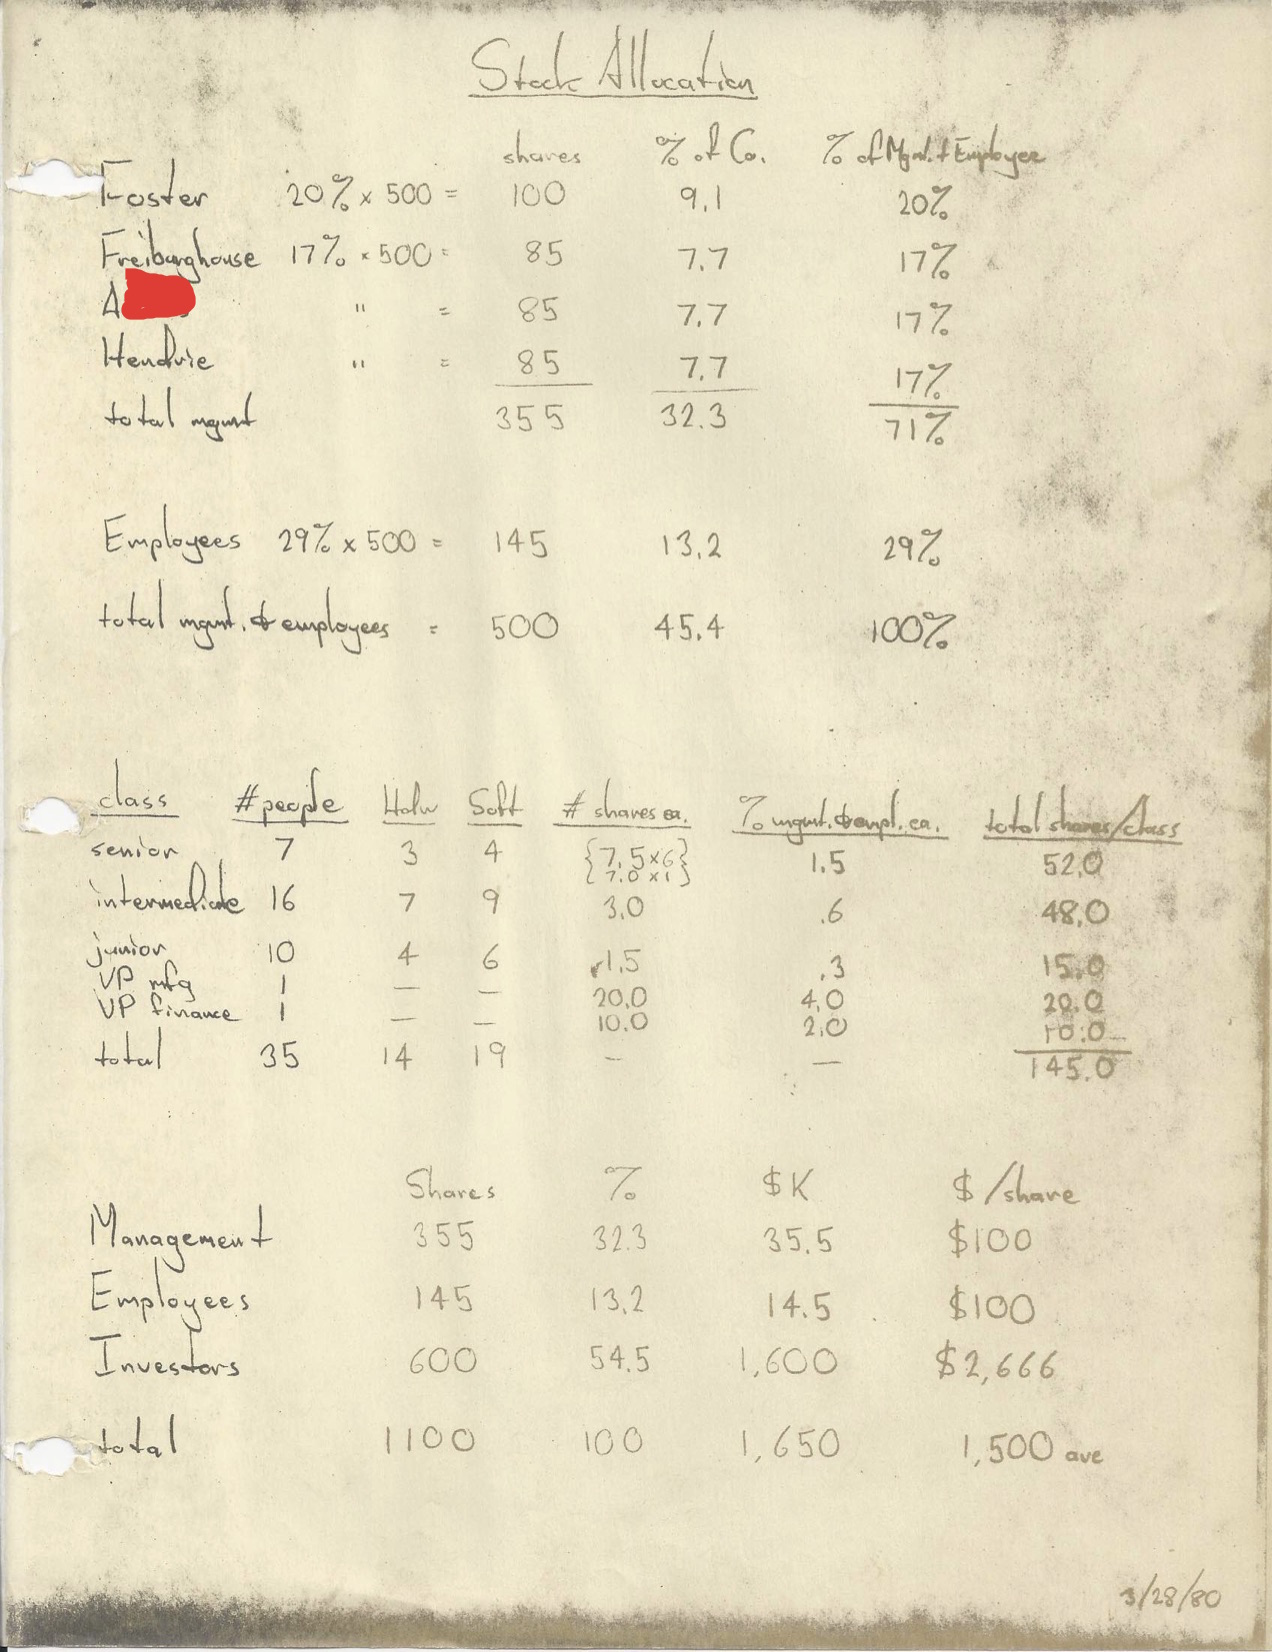 Stock Allocation
shares % of Co. % of Mgmt. & Employee
Foster 20% x 500 = 100 9.1 20%
Freiburghouse 17% x 500 = 85 7.7 17%
A " = 85 7.7 17%
Hendrie " = 85 7.7 17%
total mgmt 355 32.3 71%
Employees 29% x 500 = 145 13.2 29%
total mgmt. & employees = 500 45.4 100%
class # people Hdw Soft # shares ea. % mgmt. & empl. ea. total shares/class
senior 7 3 4 {7.5 x 6} 1.5 52.0
{7.0 x 1}
intermediate 16 7 9 3.0 .6 48.0
junior 10 4 6 1.5 .3 15.0
VP mfg 1 — — 20.0 4.0 20.0
VP finance 1 — — 10.0 2.0 10.0
total 35 14 19 — — 145.0
Shares % $K $/share
Management 355 32.3 35.5 $100
Employees 145 13.2 14.5 $100
Investors 600 54.5 1,600 $2,666
total 1100 100 1,650 1,500 ave
3/28/80